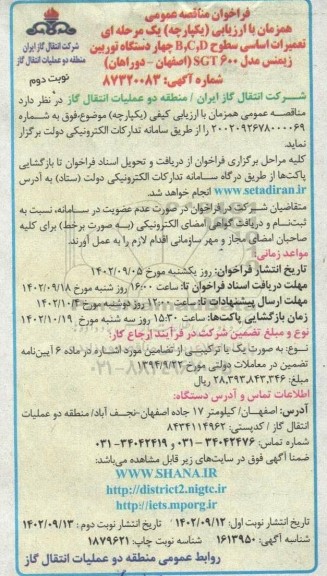 فراخوان مناقصه عمومی
همزمان با ارزیابی (یکپارچه) یک مرحله ای
تعمیرات اساسی سطوح B,C,D چهار دستگاه توربین
زیمنس مدل SGT ۶۰۰ (اصفهان - دوراهان)
شماره آگهی: ۸۷۳۲۰۰۸۳
شرکت انتقال گاز ایران
منطقه دو عملیات انتقال گاز
نوبت دوم
شرکت انتقال گاز ایران / منطقه دو عملیات انتقال گاز در نظر دارد
مناقصه عمومی همزمان با ارزیابی کیفی (یکپارچه) موضوع فوق به شماره
۲۰۰۲۰۹۲۶۷۸۰۰۰۰۶۹ را از طریق سامانه تدارکات الکترونیکی دولت برگزار
نماید.
کلیه مراحل برگزاری فراخوان از دریافت و تحویل اسناد فراخوان تا بازگشایی
پاکت‌ها از طریق درگاه سامانه تدارکات الکترونیکی دولت (ستاد) به آدرس
www.setadiran.ir انجام خواهد شد.
متقاضیان شرکت در فراخوان در صورت عدم عضویت در سامانه، نسبت به
ثبت‌نام و دریافت گواهی امضای الکترونیکی (به صورت برخط) برای کلیه
صاحبان امضای مجاز و مهر سازمانی اقدام لازم را به عمل آورند.
مواعد زمانی:
تاریخ انتشار فراخوان: روز یکشنبه مورخ ۱۴۰۲/۰۹/۰۵
مهلت دریافت اسناد فراخوان تا: ساعت ۱۶:۰۰ روز شنبه مورخ ۱۴۰۲/۰۹/۱۸
مهلت ارسال پیشنهادات تا: ساعت ۱۲:۰۰ روز دوشنبه مورخ ۱۴۰۲/۱۰/۴
زمان بازگشایی پاکت‌ها: ساعت ۱۵:۳۰ روز سه شنبه مورخ ۱۴۰۲/۱۰/۱۹
نوع و مبلغ تضمین شرکت در فرآیند ارجاع کار:
نوع: به صورت یک یا ترکیبی از تضامین مورد اشاره در ماده ۶ آیین‌نامه
تضمین در معاملات دولتی مورخ ۱۳۹۴/۹/۲۲
مبلغ: ۲۸,۳۹۳,۸۴۳,۳۴۶ ریال
اطلاعات تماس و آدرس دستگاه:
آدرس: اصفهان/ کیلومتر ۱۷ جاده اصفهان-نجف آباد/ منطقه دو عملیات
انتقال گاز / کدپستی: ۸۴۳۴۱۱۴۹۶۲
شماره تماس: ۳۴۰۴۲۴۷۶-۰۳۱ و ۳۴۰۴۲۴۱۹-۰۳۱
ضمنا آگهی فوق در سایت‌های زیر قابل مشاهده می‌باشد:
WWW.SHANA.IR
http://district2.nigtc.ir
http://iets.mporg.ir
تاریخ انتشار نوبت اول: ۱۴۰۲/۰۹/۱۲ تاریخ انتشار نوبت دوم: ۱۴۰۲/۰۹/۱۳
شناسه آگهی: ۱۶۱۳۹۵۰ شناسه نوبت چاپ: ۱۸۷۹۶۲۱
روابط عمومی منطقه دو عملیات انتقال گاز